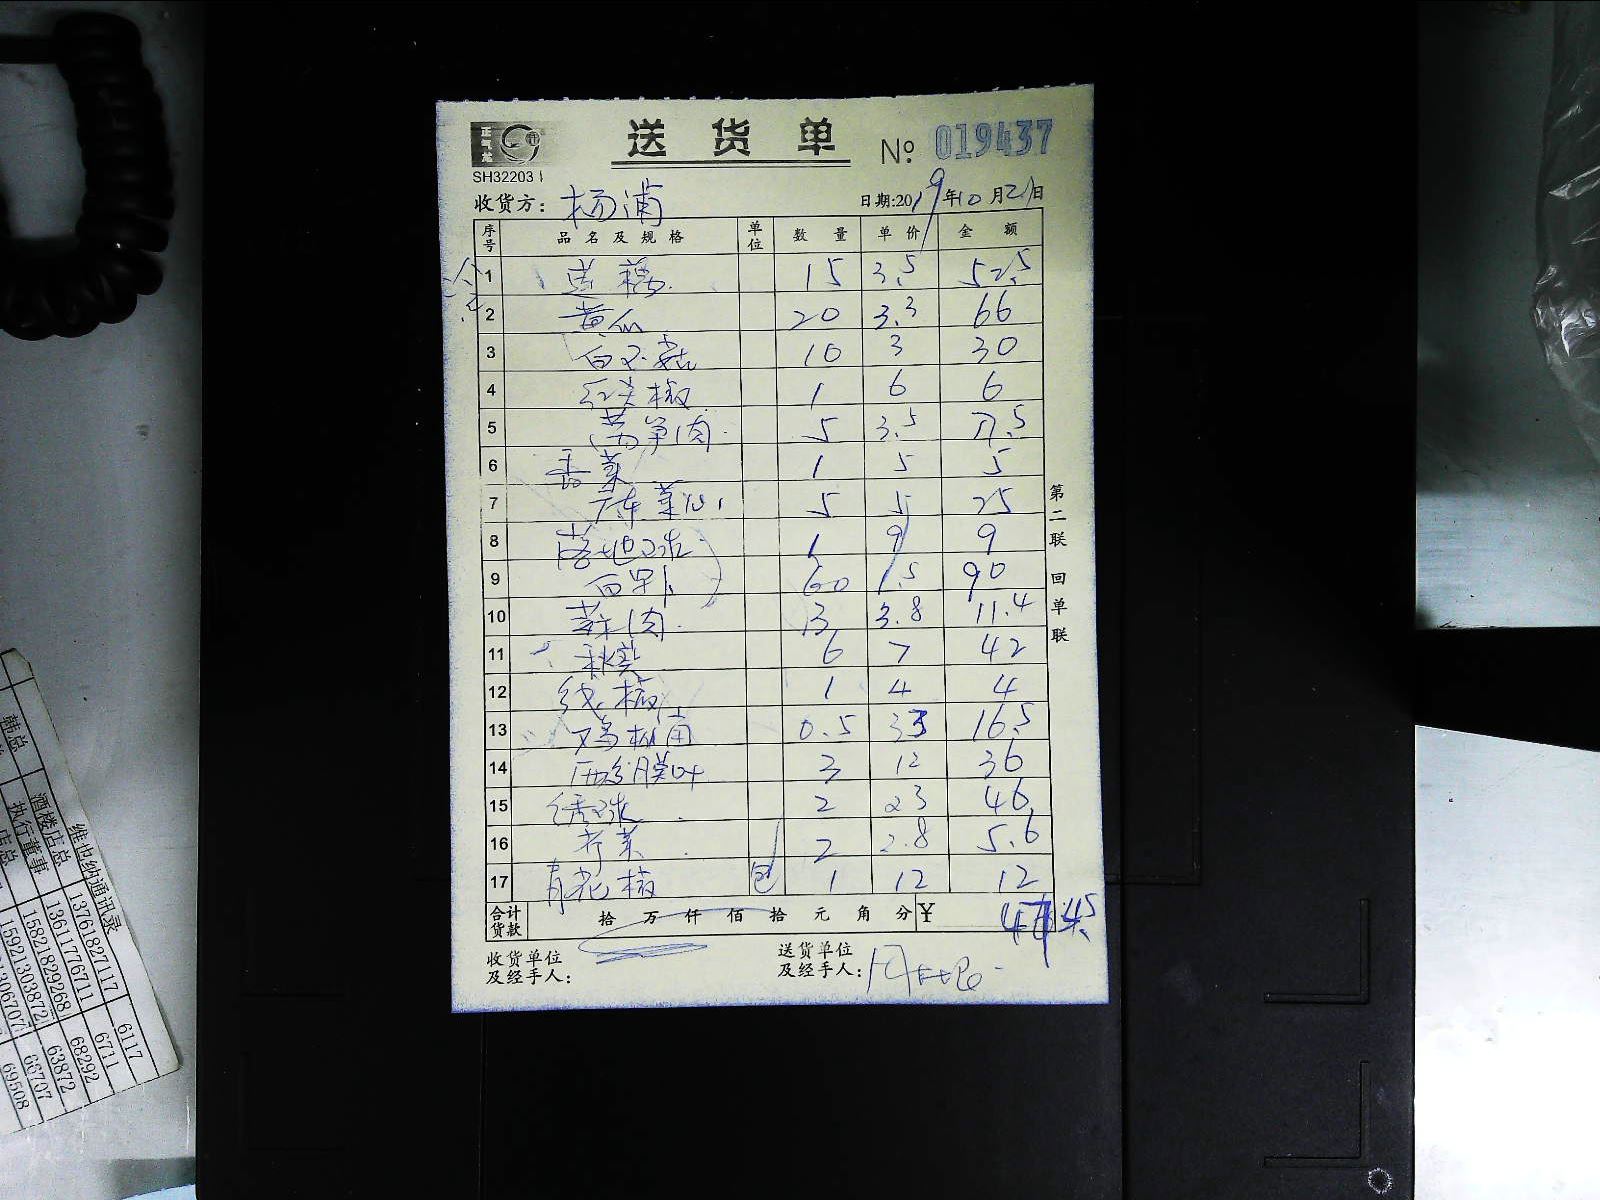 正气龙
送 货 单
№: 019437
SH32203 1
收货方: 杨浦
日期:2019年10月21日
序号 品名及规格 单位 数量 单价 金额
1 莲藕 15 3.5 52.5
2 黄瓜 20 3.3 66
3 白玉菇 10 3 30
4 红尖椒 1 6 6
5 莴笋肉 5 3.5 17.5
6 香菜 1 5 5
7 广东菜心 5 5 25
8 落地球 1 9 9
9 白罗卜 60 1.5 90
10 肉 3 3.8 11.4
11 秋葵 6 7 42
12 线椒 1 4 4
13 0.5 33 16.5
14 叶 3 12 36
15 绣球 2 23 46
16 荠菜 2 2.8 5.6
17 青花椒 包 1 12 12
合计货款 拾 万 仟 佰 拾 元 角 分 ¥
收货单位及经手人:
送货单位及经手人:
第二联 回单联
韩总
酒楼店总
执行董事
店总
维也纳通讯录
13761827117 6117
13611776711 6711
15821829268 68292
15921303872 63872
69508